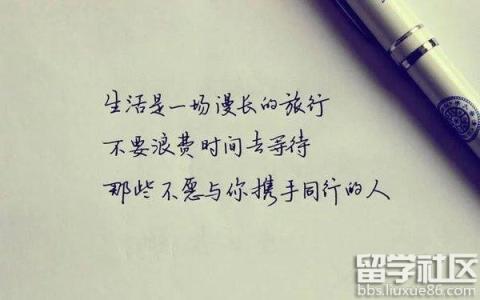 生活是一场漫长的旅行
不要浪费时间去等待
那些不愿与你携手同行的人
留学社区
bbs.liuxue86.com